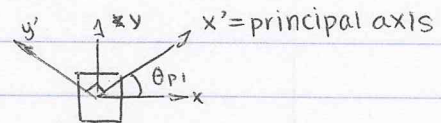 y'
y
x' = principal axis
θp1
x